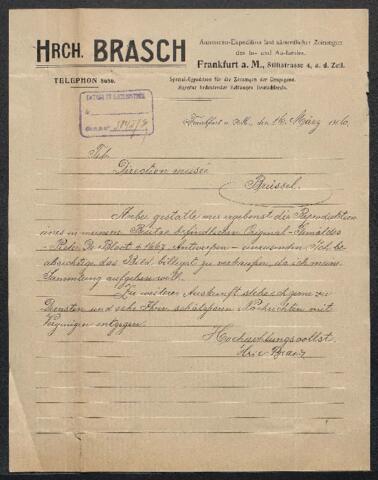 HRCH. BRASCH
Annoncen-Expedition fast sämmtlicher Zeitungen
des In- und Auslandes.
Frankfurt a. M., Stiftstrasse 4, a. d. Zeil.
TELEPHON 8686.
Special-Expedition für die Zeitungen der Umgegend.
Agentur bedeutender Zeitungen Deutschlands.
Frankfurt a. M., den 16. März 19
Tit.
Direction museé
Brüssel.
Anbei gestatte mir ergebenst die Reproduktion
eines in meinem Besitze befindlichen Original-Gemäldes
Pieter D. Bloot † 1667 Antwerpen einzusenden. Ich be-
absichtige, das Bild billigst zu verkaufen, da ich meine
Sammlung aufgeben will.
Zu weiterer Auskunft stehe ich gerne zu
Diensten und sehe Ihren schätzbaren Nachrichten mit
Vergnügen entgegen
Hochachtungsvollst
Brasch